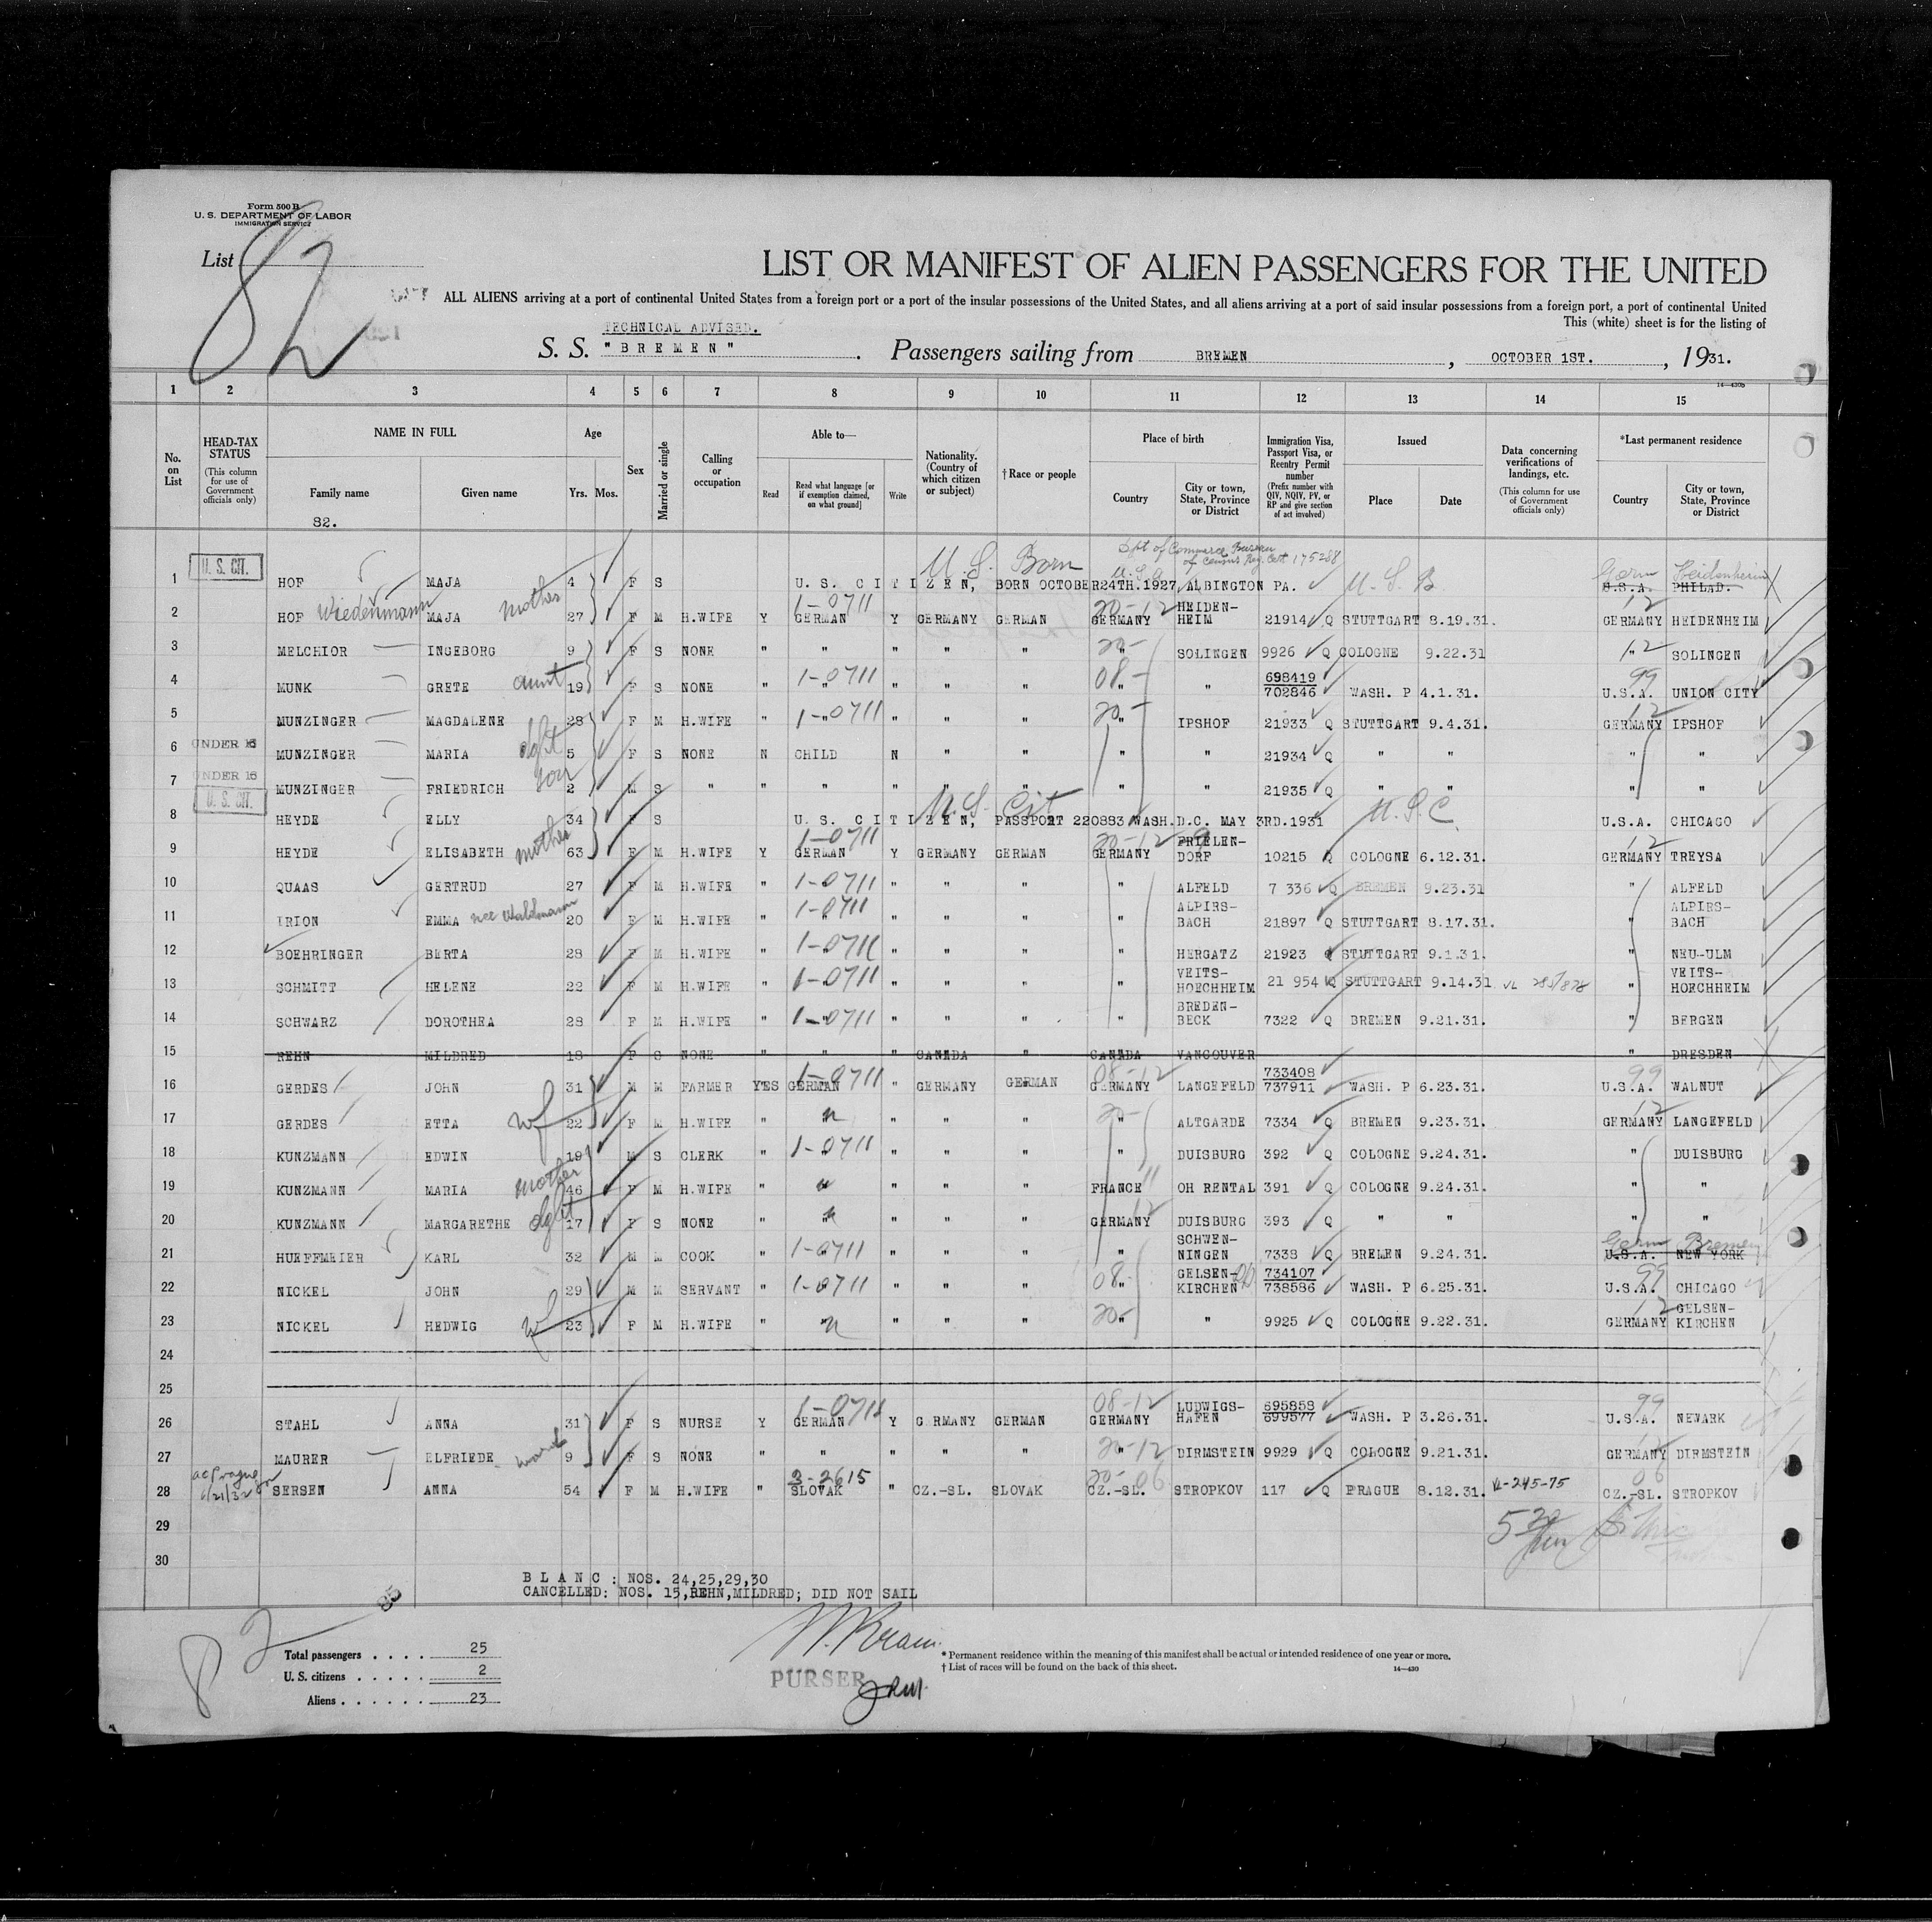 Form 500 B
U. S. DEPARTMENT OF LABOR
IMMIGRATION SERVICE
List 82
LIST OR MANIFEST OF ALIEN PASSENGERS FOR THE UNITED
ALL ALIENS arriving at a port of continental United States from a foreign port or a port of the insular possessions of the United States, and all aliens arriving at a port of said insular possessions from a foreign port, a port of continental United
This (white) sheet is for the listing of
TECHNICAL ADVISED.
S. S. "BREMEN" . Passengers sailing from BREMEN , OCTOBER 1ST. , 1931.
14—430b
1 2 3 4 5 6 7 8 9 10 11 12 13 14 15
No. on List
HEAD-TAX STATUS (This column for use of Government officials only)
NAME IN FULL Family name Given name
82.
Age Yrs. Mos.
Sex
Married or single
Calling or occupation
Able to— Read Read what language [or if exemption claimed, on what ground] Write
Nationality. (Country of which citizen or subject)
†Race or people
Place of birth Country City or town, State, Province or District
Immigration Visa, Passport Visa, or Reentry Permit number (Prefix number with QIV, NQIV, PV, or RP and give section of act involved)
Issued Place Date
Data concerning verifications of landings, etc. (This column for use of Government officials only)
*Last permanent residence Country City or town, State, Province or District
U. S. Born Dpt of Commerce Bureau of Census Reg. Cert 175288
1 U. S. CIT. HOF MAJA 4 F S U. S. CITIZEN, BORN OCTOBER 24TH.1927, ALBINGTON PA. U.S.B. U.S.A. PHILAD. Germ Heidenheim
2 HOF Wiedenmann MAJA mother 27 F M H.WIFE Y GERMAN 1-0711 Y GERMANY GERMAN GERMANY 20-12 HEIDEN-HEIM 21914 Q STUTTGART 8.19.31. GERMANY 12 HEIDENHEIM
3 MELCHIOR INGEBORG 9 F S NONE " " " " " " 20- SOLINGEN 9926 Q COLOGNE 9.22.31 " 12 SOLINGEN
4 MUNK GRETE aunt 19 F S NONE " " 1-0711 " " " " 08- " 698419 702846 WASH. P 4.1.31. U.S.A. 99 UNION CITY
5 MUNZINGER MAGDALENE 28 F M H.WIFE " " 1-0711 " " " " 20- IPSHOF 21933 Q STUTTGART 9.4.31. GERMANY 12 IPSHOF
6 UNDER 16 MUNZINGER MARIA dght 5 F S NONE N CHILD N " " " " 21934 Q " " " "
7 UNDER 16 MUNZINGER FRIEDRICH son 2 M S " " " " " " " " 21935 Q " " " "
8 U. S. CIT. HEYDE ELLY 34 F S U. S. CITIZEN, PASSPORT 220883 WASH.D.C. MAY 3RD.1931 U.S. Cit U.S.C. U.S.A. CHICAGO
9 HEYDE ELISABETH mother 63 F M H.WIFE Y GERMAN 1-0711 Y GERMANY GERMAN GERMANY 20-12 FRIELEN-DORF 10215 Q COLOGNE 6.12.31. GERMANY 12 TREYSA
10 QUAAS GERTRUD 27 F M H.WIFE " 1-0711 " " " " ALFELD 7 336 Q BREMEN 9.23.31 " ALFELD
11 IRION EMMA nee Waldmann 20 F M H.WIFE " " 1-0711 " " " " ALPIRS-BACH 21897 Q STUTTGART 8.17.31. " ALPIRS-BACH
12 BOEHRINGER BERTA 28 F M H.WIFE " " 1-0711 " " " " HERGATZ 21923 Q STUTTGART 9.1.31. " NEU-ULM
13 SCHMITT HELENE 22 F M H.WIFE " 1-0711 " " " " VEITS-HOECHHEIM 21 954 Q STUTTGART 9.14.31 " VEITS-HOECHHEIM
14 SCHWARZ DOROTHEA 28 F M H.WIFE " " 1-0711 " " " " BREDEN-BECK 7322 Q BREMEN 9.21.31. " BERGEN
15 REHN MILDRED 18 F S NONE " " " CANADA " CANADA VANCOUVER " DRESDEN
16 GERDES JOHN 31 M M FARMER YES GERMAN 1-0711 " GERMANY GERMAN GERMANY 08-12 LANGEFELD 733408 737911 WASH. P 6.23.31. U.S.A. 99 WALNUT
17 GERDES ETTA wf 22 F M H.WIFE " " " " " " 20- ALTGARDE 7334 Q BREMEN 9.23.31. GERMANY 12 LANGEFELD
18 KUNZMANN EDWIN 19 M S CLERK " 1-0711 " " " " DUISBURG 392 Q COLOGNE 9.24.31. " DUISBURG
19 KUNZMANN MARIA mother 46 F M H.WIFE " " " " " FRANCE 11 OH RENTAL 391 Q COLOGNE 9.24.31. " "
20 KUNZMANN MARGARETHE dght 17 F S NONE " " " " " GERMANY 12 DUISBURG 393 Q " " " "
21 HUEFFMEIER KARL 32 M M COOK " 1-0711 " " " " SCHWEN-NINGEN 7338 Q BREMEN 9.24.31. U.S.A. NEW YORK Germ Bremen
22 NICKEL JOHN 29 M M SERVANT " 1-0711 " " " " 08- GELSEN-KIRCHEN 734107 738586 WASH. P 6.25.31. U.S.A. 99 CHICAGO
23 NICKEL HEDWIG wf 23 F M H.WIFE " " " " " " 20- " 9925 Q COLOGNE 9.22.31. GERMANY 12 GELSEN-KIRCHEN
24
25
26 STAHL ANNA 31 F S NURSE Y GERMAN 1-0711 Y G RMANY GERMAN GERMANY 08-12 LUDWIGS-HAFEN 695858 699577 WASH. P 3.26.31. U.S.A. 99 NEWARK
27 MAURER ELFRIEDE 9 F S NONE " " " " " " 20-12 DIRMSTEIN 9929 Q COLOGNE 9.21.31. GERMANY DIRMSTEIN
28 SERSEN ANNA 54 F M H.WIFE " SLOVAK 3-2615 " CZ.-SL. SLOVAK CZ.-SL. 20-06 STROPKOV 117 Q PRAGUE 8.12.31. CZ.-SL. 06 STROPKOV
29
30
BLANC: NOS. 24,25,29,30
CANCELLED: NOS. 15,REHN,MILDRED; DID NOT SAIL
82
Total passengers . . . . 25
U. S. citizens . . . . . 2
Aliens . . . . . . 23
PURSER
* Permanent residence within the meaning of this manifest shall be actual or intended residence of one year or more.
† List of races will be found on the back of this sheet.
14—430